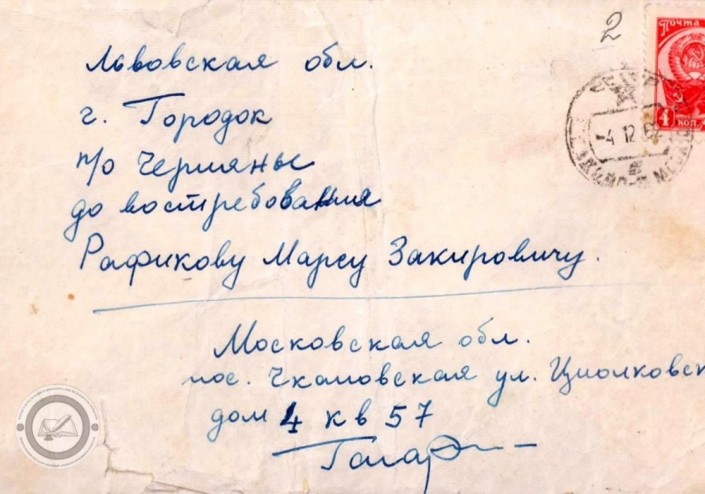 Львовская обл.
г. Городок
п/о Черляны
до востребования
Рафикову Марсу Закировичу.
Московская обл.
пос. Чкаловская ул. Циолковск
дом 4 кв 57
Гагар
2
ПОЧТА
4 КОП
-4 12